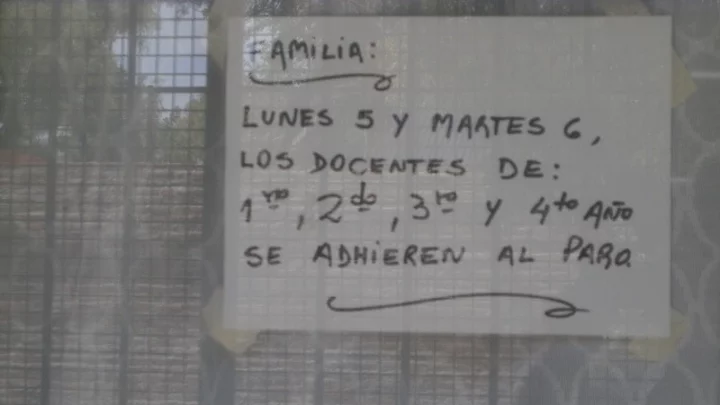 FAMILIA:
LUNES 5 Y MARTES 6,
LOS DOCENTES DE:
1ro, 2do, 3ro Y 4to AÑO
SE ADHIEREN AL PARO